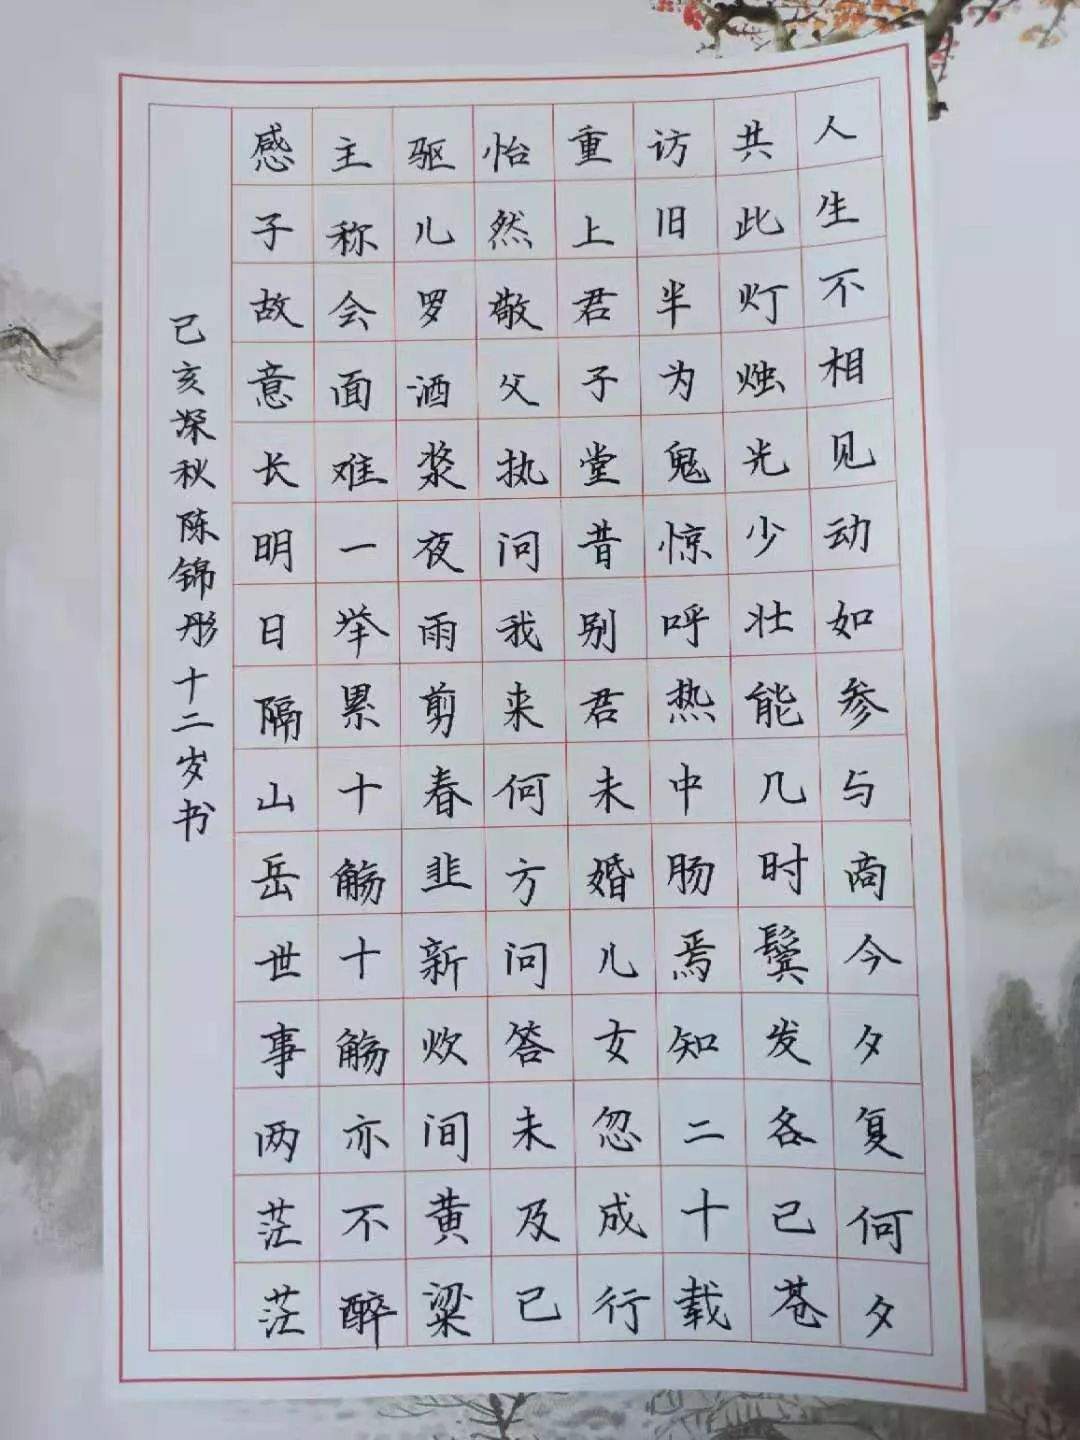 人生不相见动如参与商今夕复何夕
共此灯烛光少壮能几时鬓发各已苍
访旧半为鬼惊呼热中肠焉知二十载
重上君子堂昔别君未婚儿女忽成行
怡然敬父执问我来何方问答未及已
驱儿罗酒浆夜雨剪春韭新炊间黄粱
主称会面难一举累十觞十觞亦不醉
感子故意长明日隔山岳世事两茫茫
己亥深秋陈锦彤十二岁书